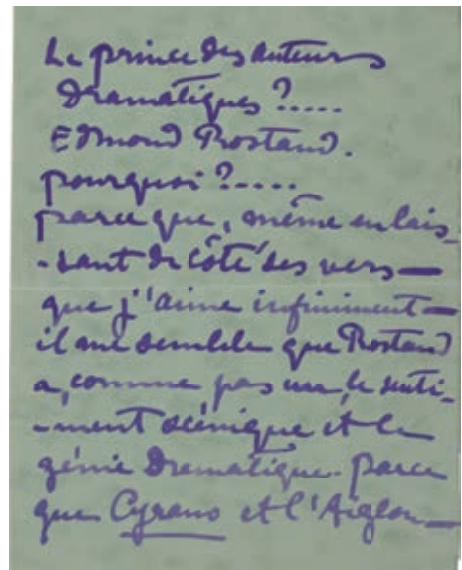 Le prince des auteurs
Dramatiques ?.....
Edmond Rostand.
pourquoi ?.....
parce que, même en lais-
-sant de côté ses vers —
que j'aime infiniment —
il me semble que Rostand
a, comme pas un, le senti-
-ment scénique et le
génie Dramatique. parce
que Cyrano et l'Aiglon —